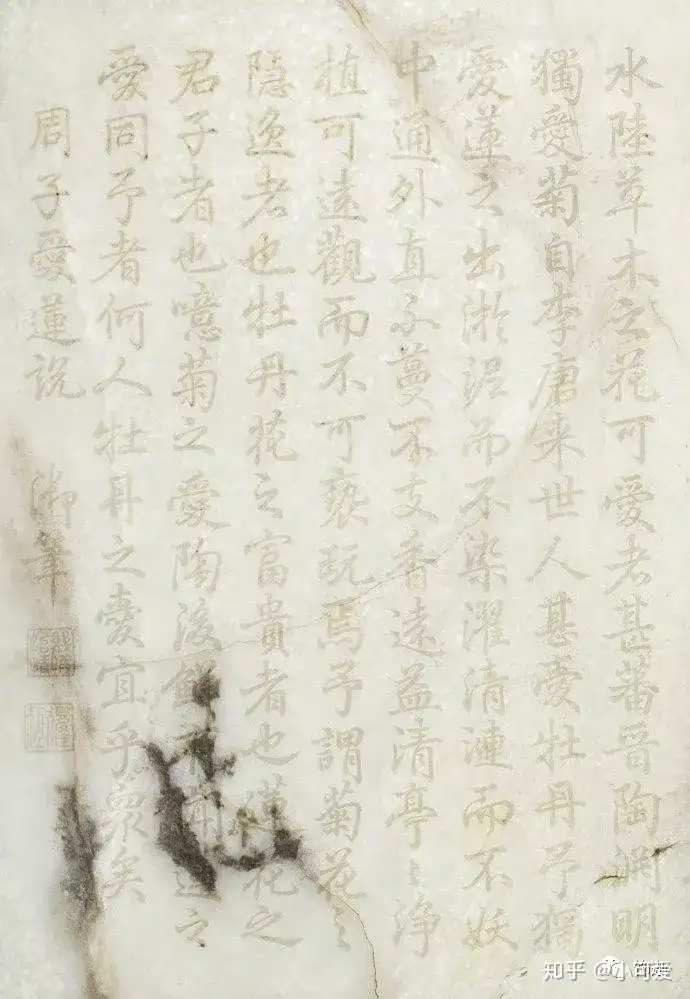 水陸草木之花可愛者甚蕃晉陶淵明
獨愛菊自李唐来世人甚愛牡丹予獨
愛蓮之出淤泥而不染濯清漣而不妖
中通外直不蔓不支香遠益清亭〻淨
植可遠觀而不可褻玩焉予謂菊花之
隐逸者也牡丹花之富貴者也蓮花之
君子者也噫菊之愛陶後鮮聞蓮之
愛同予者何人牡丹之愛宜乎衆矣
周子愛蓮説 御筆
知乎 @小